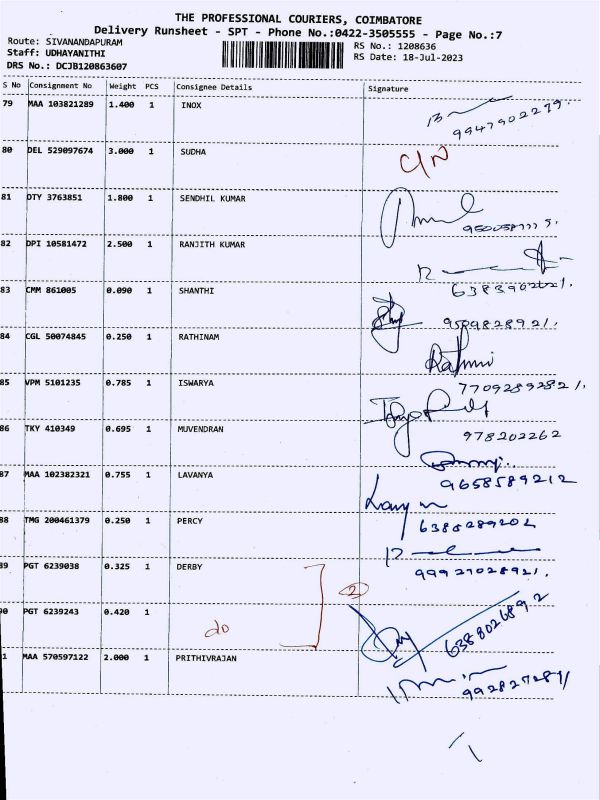 THE PROFESSIONAL COURIERS, COIMBATORE
Delivery Runsheet - SPT - Phone No.:0422-3505555 - Page No.:7
Route: SIVANANDAPURAM
Staff: UDHAYANITHI
DRS No.: DCJB120863607
RS No.: 1208636
RS Date: 18-Jul-2023
S No Consignment No Weight PCS Consignee Details Signature
79 MAA 103821289 1.400 1 INOX
9947902279
80 DEL 529097674 3.000 1 SUDHA
C/N
81 DTY 3763851 1.800 1 SENDHIL KUMAR
82 DPI 10581472 2.500 1 RANJITH KUMAR
83 CMM 861005 0.090 1 SHANTHI
9509828921.
84 CGL 50074845 0.250 1 RATHINAM
85 VPM 5101235 0.785 1 ISWARYA
86 TKY 410349 0.695 1 MUVENDRAN
978202262
87 MAA 102382321 0.755 1 LAVANYA
9658589212
88 TMG 200461379 0.250 1 PERCY
6385289202
89 PGT 6239038 0.325 1 DERBY
2
99927028921.
90 PGT 6239243 0.420 1
do
6388026892
1 MAA 570597122 2.000 1 PRITHIVRAJAN